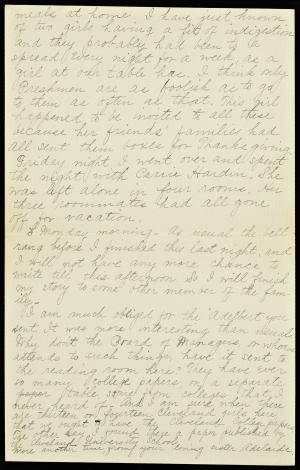 meals at home. I have just known
of two girls having a fit of indigestion
and they probably had been to a
spread every night for a week, as a
girl at our table has. I think only
Freshmen are as foolish as to go
to them as often as that. This girl
happened to be invited to all these
because her friends' families had
all sent them boxes for Thanksgiving.
Friday night I went over and spent
the night with Carrie Hardin. She
was left alone in four rooms. Her
three roommates had all gone
off for vacation.
Monday morning - As usual the bell
rang before I finished this last night, and
I will not have any more chance to
write till this afternoon. So I will finish
my story to some other member of the fam-
ily.
I am much obliged for the Adelbert you
sent. It was more interesting than usual.
Why don't the Board of Managers, or whom
attends to such things, have it sent to
the reading room here? They have ever
so many college papers on a separate
table, some from colleges that I
never heard of. And I am sure when there
are thirteen or fourteen Cleveland girls here
that we ought to have the Cleveland college papers
The other day I found there a paper published by
the Cleveland University School.
More another time from your loving sister Adelaide.